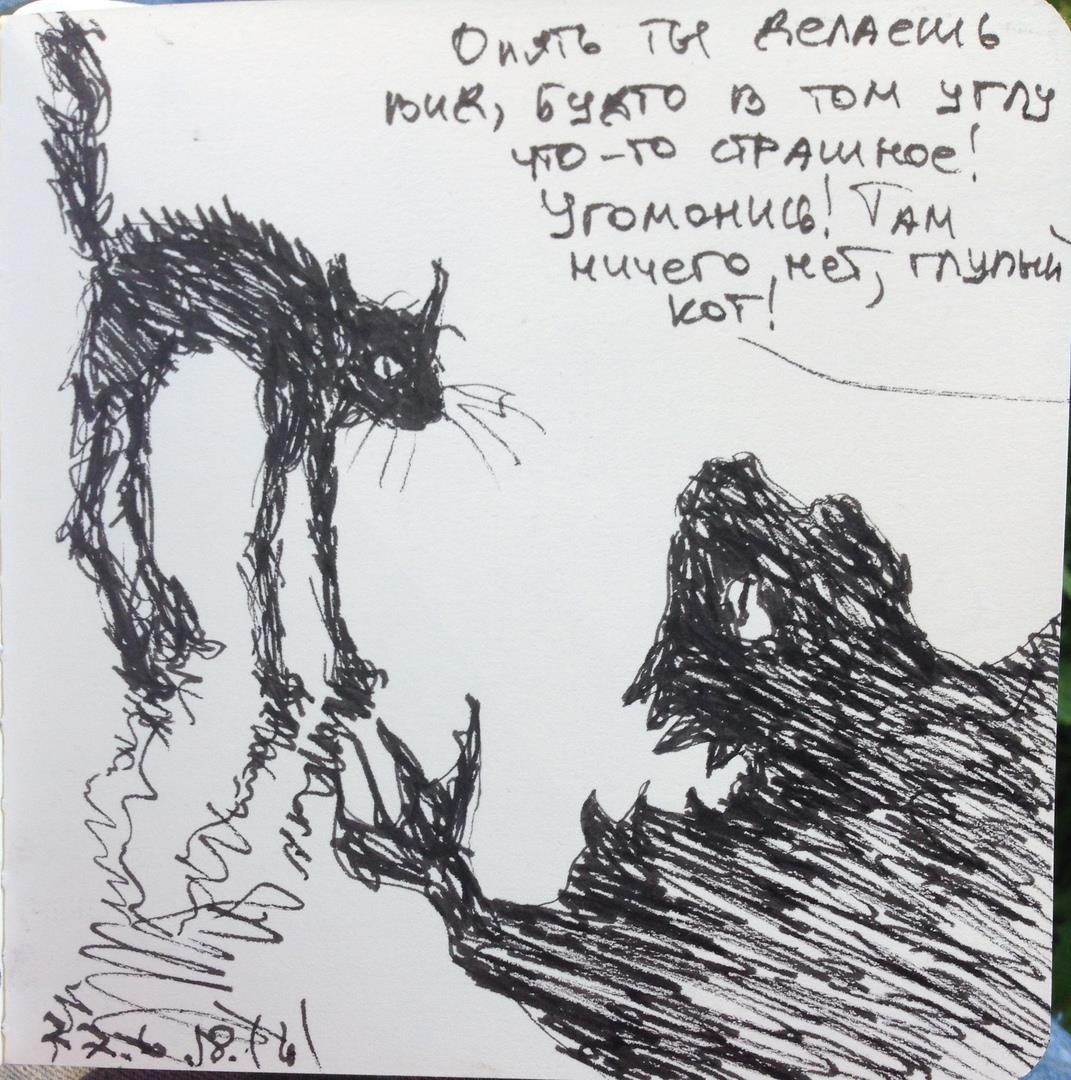 Опять ты делаешь
вид, будто в том углу
что-то страшное!
Угомонись! Там
ничего нет, глупый
кот!